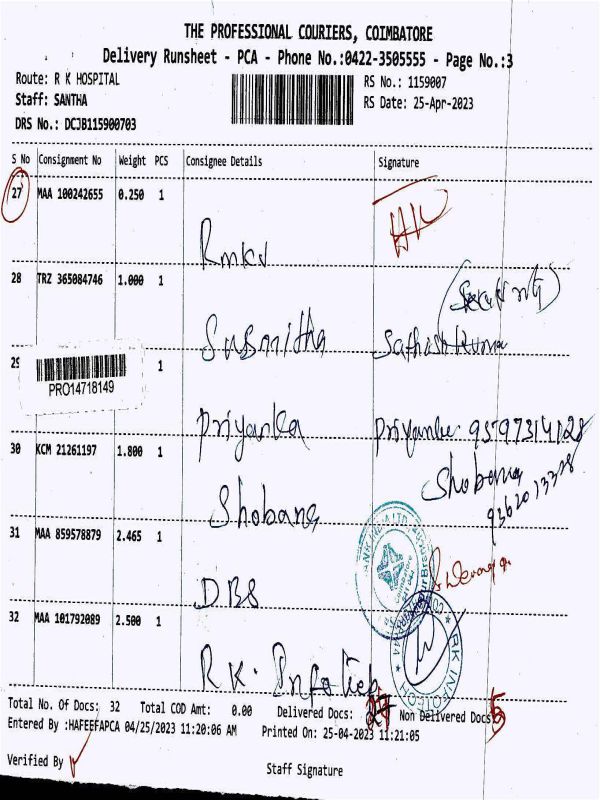 THE PROFESSIONAL COURIERS, COIMBATORE
Delivery Runsheet - PCA - Phone No.:0422-3505555 - Page No.:3
Route: R K HOSPITAL
RS No.: 1159007
Staff: SANTHA
RS Date: 25-Apr-2023
DRS No.: DCJB115900703
S No Consignment No Weight PCS Consignee Details Signature
27 MAA 100242655 0.250 1
Rmkv
28 TRZ 365084746 1.000 1
(Security)
Susmitha Sathishkumar
29 1
PRO14718149
Priyanka Priyanka 9597314128
30 KCM 21261197 1.800 1
Shobana Shobana
9362013328
31 MAA 859578879 2.465 1
DBS
32 MAA 101792089 2.500 1
RK INFOTECH
RK. Infotech
Total No. Of Docs: 32 Total COD Amt: 0.00 Delivered Docs: 27 Non Delivered Docs: 5
Entered By :HAFEEFAPCA 04/25/2023 11:20:06 AM Printed On: 25-04-2023 11:21:05
Verified By
Staff Signature